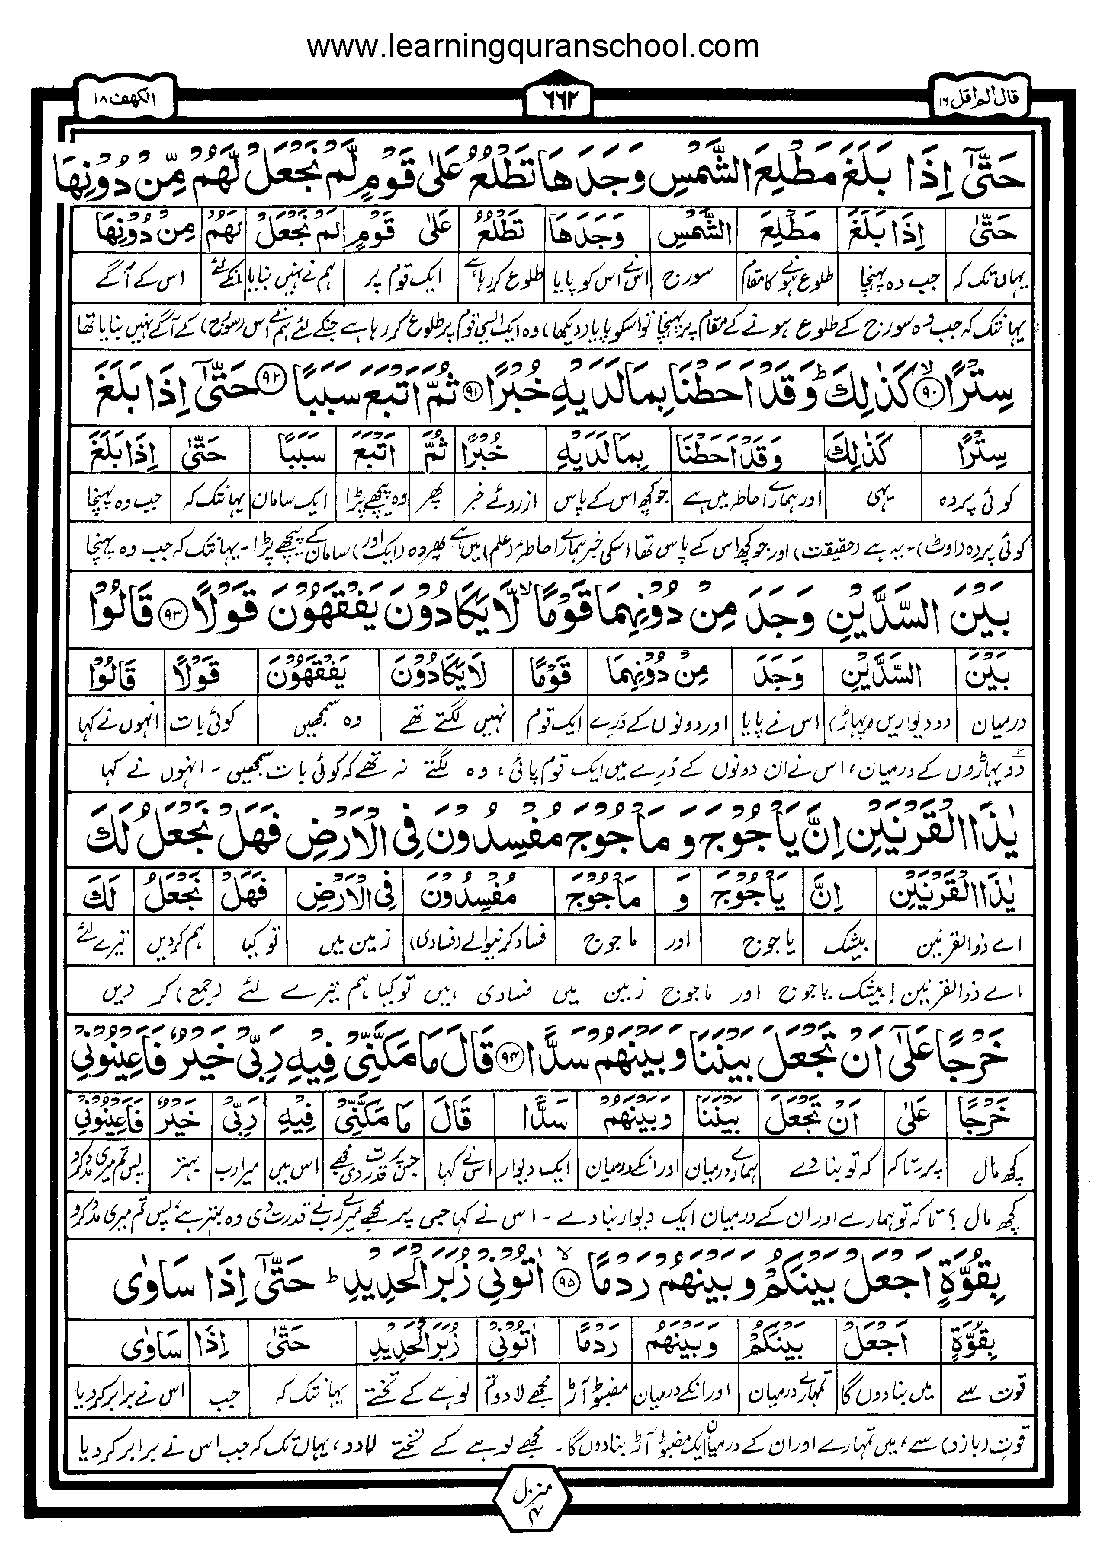 www.learningquranschool.com
قال الم اقل ١٦
٦٦٢
الكهف ١٨
حَتّٰۤى اِذَا بَلَغَ مَطْلِعَ الشَّمْسِ وَجَدَهَا تَطْلُعُ عَلٰى قَوْمٍ لَّمْ نَجْعَلْ لَّهُمْ مِّنْ دُوْنِهَا
حَتّٰى اِذَا بَلَغَ مَطْلِعَ الشَّمْسِ وَجَدَهَا تَطْلُعُ عَلٰى قَوْمٍ لَمْ نَجْعَلْ لَهُمْ مِنْ دُوْنِهَا
یہاں تک کہ جب وہ پہنچا طلوع ہونے کا مقام سورج اس نے اس کو پایا طلوع کر رہا ہے ایک قوم پر ہم نے نہیں بنایا انکے لئے اس کے آگے
یہانتک کہ جب وہ سورج کے طلوع ہونے کے مقام پر پہنچا تو اسکو پایا (دیکھا) وہ ایک ایسی قوم پر طلوع کر رہا ہے جنکے لئے ہم نے اس (سورج) کے آگے نہیں بنایا تھا
سِتْرًا ۙ‏﴿۹۰﴾ كَذٰلِكَ ؕ وَقَدْ اَحَطْنَا بِمَا لَدَيْهِ خُبْرًا ﴿۹۱﴾ ثُمَّ اَتْبَعَ سَبَبًا ﴿۹۲﴾ حَتّٰۤى اِذَا بَلَغَ
سِتْرًا كَذٰلِكَ وَقَدْ اَحَطْنَا بِمَا لَدَيْهِ خُبْرًا ثُمَّ اَتْبَعَ سَبَبًا حَتّٰى اِذَا بَلَغَ
کوئی پردہ یہی اور ہمارے احاطہ میں ہے جو کچھ اس کے پاس ازروئے خبر پھر وہ پیچھے پڑا ایک سامان یہانتک کہ جب وہ پہنچا
کوئی پردہ (اوٹ)۔ یہ ہے (حقیقت) اور جو کچھ اس کے پاس تھا اسکی خبر ہمارے احاطہ (علم) میں ہے پھر وہ (ایک اور) سامان کے پیچھے پڑا۔ یہانتک کہ جب وہ پہنچا
بَيْنَ السَّدَّيْنِ وَجَدَ مِنْ دُوْنِهِمَا قَوْمًا ۙ لَّا يَكَادُوْنَ يَفْقَهُوْنَ قَوْلًا ﴿۹۳﴾ قَالُوْا
بَيْنَ السَّدَّيْنِ وَجَدَ مِنْ دُوْنِهِمَا قَوْمًا لَا يَكَادُوْنَ يَفْقَهُوْنَ قَوْلًا قَالُوْا
درمیان دو دیواریں (پہاڑ) اس نے پایا اور دونوں کے ورے ایک قوم نہیں لگتے تھے وہ سمجھیں کوئی بات انہوں نے کہا
دو پہاڑوں کے درمیان، اس نے ان دونوں کے ورے میں ایک قوم پائی، وہ لگتے نہ تھے کہ کوئی بات سمجھیں۔ انہوں نے کہا
يٰذَا الْقَرْنَيْنِ اِنَّ يَاْجُوْجَ وَ مَاْجُوْجَ مُفْسِدُوْنَ فِى الْاَرْضِ فَهَلْ نَجْعَلُ لَكَ
يٰذَا الْقَرْنَيْنِ اِنَّ يَاْجُوْجَ وَ مَاْجُوْجَ مُفْسِدُوْنَ فِى الْاَرْضِ فَهَلْ نَجْعَلُ لَكَ
اے ذوالقرنین بیشک یاجوج اور ماجوج فساد کرنیوالے (فسادی) زمین میں تو کیا ہم کر دیں تیرے لئے
اے ذوالقرنین! بیشک یاجوج اور ماجوج زمین میں فسادی ہیں تو کیا ہم تیرے لئے (جمع) کر دیں
خَرْجًا عَلٰۤى اَنْ تَجْعَلَ بَيْنَنَا وَ بَيْنَهُمْ سَدًّا ﴿۹۴﴾ قَالَ مَا مَكَّنِّىْ فِيْهِ رَبِّىْ خَيْرٌ فَاَعِيْنُوْنِىْ
خَرْجًا عَلٰى اَنْ تَجْعَلَ بَيْنَنَا وَبَيْنَهُمْ سَدًّا قَالَ مَا مَكَّنِّىْ فِيْهِ رَبِّىْ خَيْرٌ فَاَعِيْنُوْنِىْ
کچھ مال پر تاکہ کہ تو بنا دے ہمارے درمیان اور انکے درمیان ایک دیوار اس نے کہا جس پر قدرت دی مجھے اس میں میرا رب بہتر پس تم میری مدد کرو
کچھ مال؟ تاکہ تو ہمارے اور ان کے درمیان ایک دیوار بنا دے۔ اس نے کہا جس پر مجھے میرے رب نے قدرت دی وہ بہتر ہے، پس تم میری مدد کرو
بِقُوَّةٍ اَجْعَلْ بَيْنَكُمْ وَ بَيْنَهُمْ رَدْمًا ۙ‏﴿۹۵﴾ اٰتُوْنِىْ زُبَرَ الْحَدِيْدِ ؕ حَتّٰۤى اِذَا سَاوٰى
بِقُوَّةٍ اَجْعَلْ بَيْنَكُمْ وَبَيْنَهُمْ رَدْمًا اٰتُوْنِىْ زُبَرَ الْحَدِيْدِ حَتّٰى اِذَا سَاوٰى
قوت سے میں بنا دوں گا تمہارے درمیان اور انکے درمیان مضبوط آڑ مجھے لا دو تم لوہے کے تختے یہانتک کہ جب اس نے برابر کر دیا
قوت (بازو) سے، میں تمہارے اور ان کے درمیان ایک مضبوط آڑ بنا دوں گا۔ مجھے لوہے کے تختے لا دو، یہاں تک کہ جب اس نے برابر کر دیا
منزل ۴